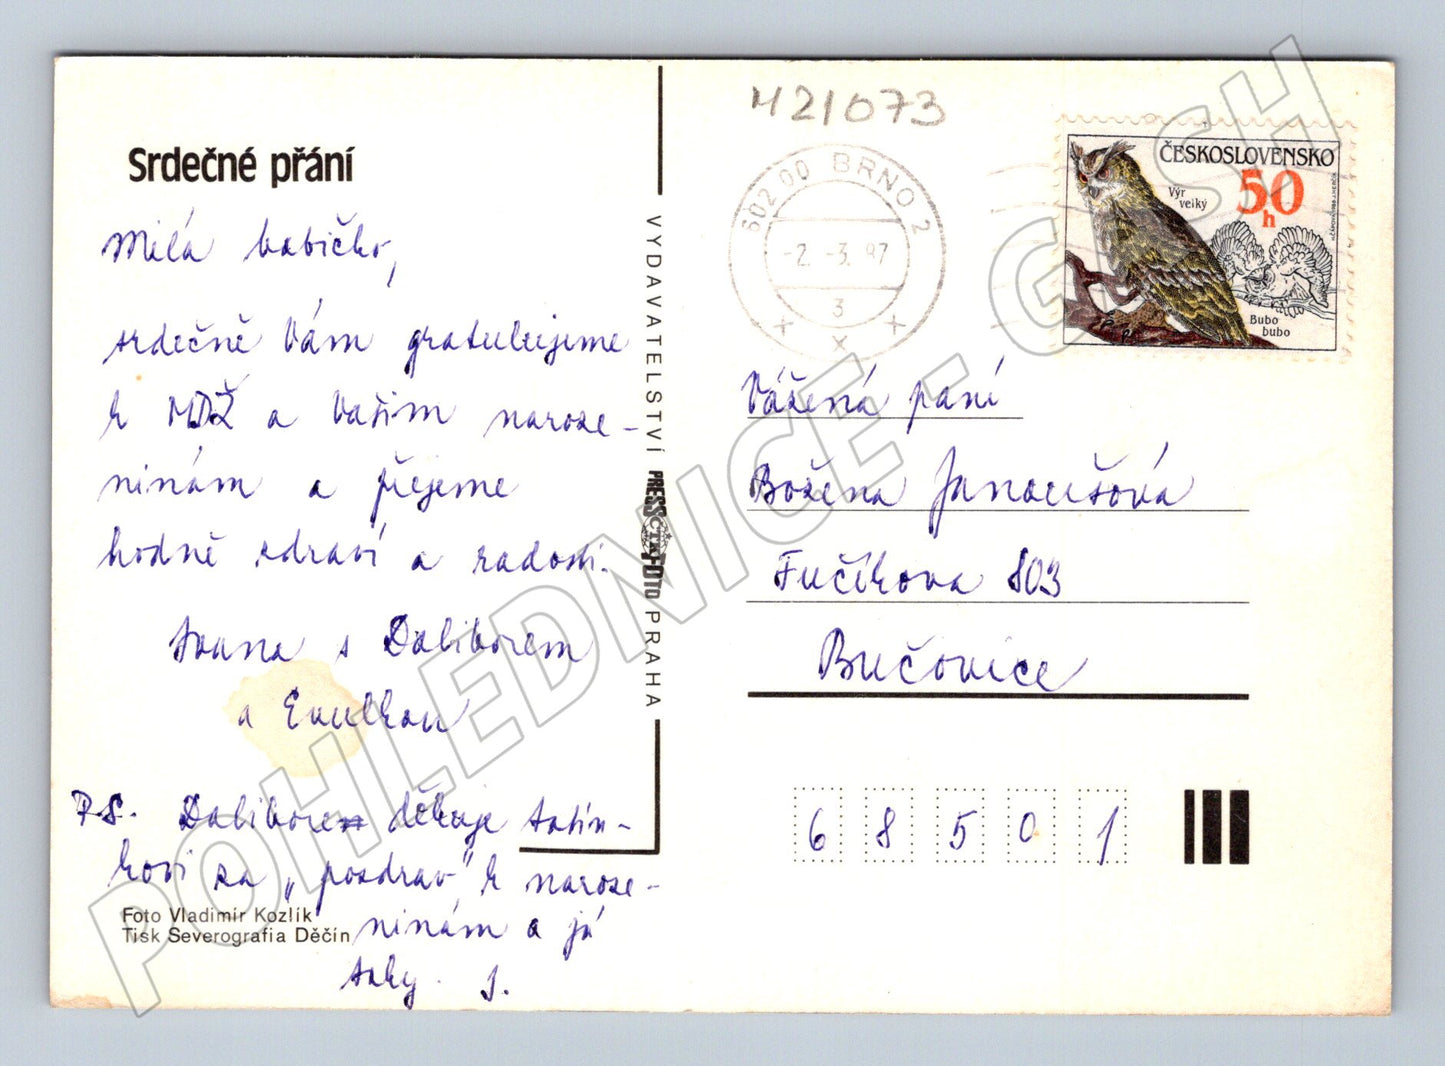 Srdečné přání
Milá babičko,
srdečně Vám gratulujeme
k MDŽ a Vašim naroze-
ninám a přejeme
hodně zdraví a radosti.
Ivana s Daliborem
a Evulkou
P.S. Dalibor děkuje tatín-
kovi za „pozdrav" k naroze-
ninám a já
taky. I.
Foto Vladimír Kozlík
Tisk Severografia Děčín
VYDAVATELSTVÍ PRESSFOTO PRAHA
ČTK
M21073
602 00 BRNO 2
-2. -3. 87
3
x
ČESKOSLOVENSKO
50
h
Výr
velký
Bubo
bubo
Vážená paní
Božena Janoušová
Fučíkova 803
Bučovice
68501
POHLEDNICE - GASH